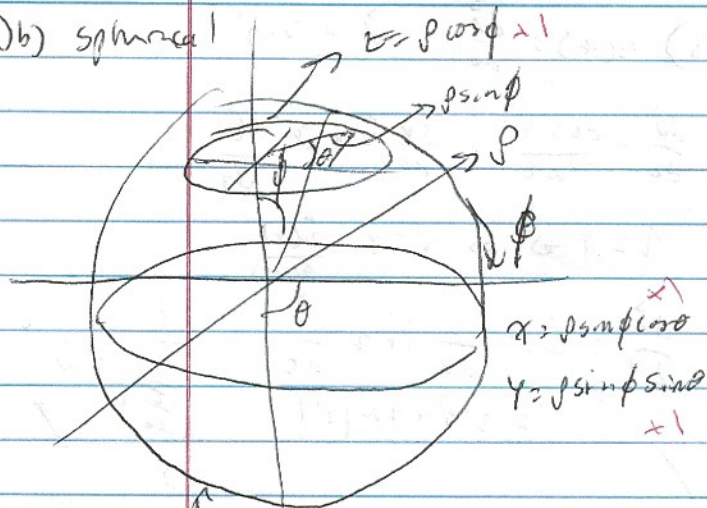 )b) spherical
z = ρcosϕ +1
ρsinϕ
ρ
θ
ϕ
ϕ
θ
+1
x = ρsinϕcosθ
y = ρsinϕsinθ
+1